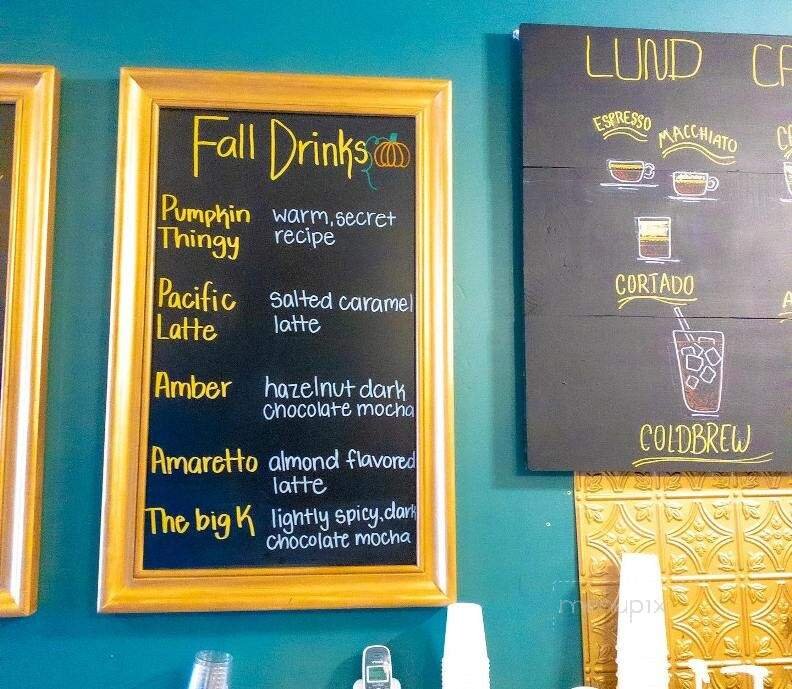 Fall Drinks
Pumpkin Thingy
warm, secret recipe
Pacific Latte
salted caramel latte
Amber
hazelnut dark chocolate mocha
Amaretto
almond flavored latte
The big K
lightly spicy, dark chocolate mocha
LUND
ESPRESSO
MACCHIATO
CORTADO
COLDBREW